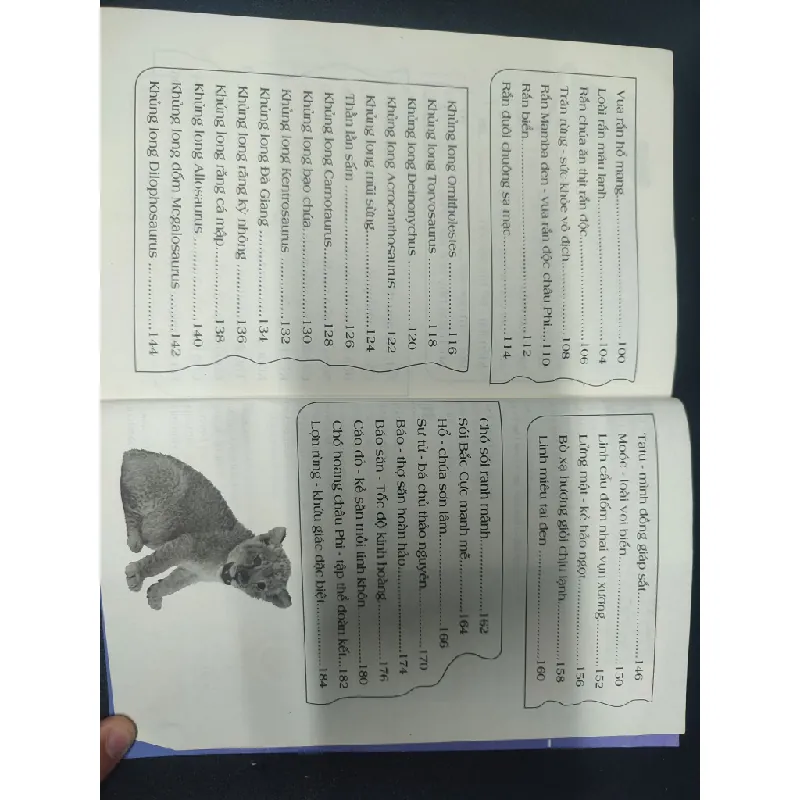 Vua rắn hổ mang..............................100
Loài rắn máu lạnh............................104
Rắn chúa ăn thịt rắn độc.....................106
Trăn rừng - sức khỏe vô địch.................108
Rắn Mamba đen - vua rắn độc châu Phi....110
Rắn biển.....................................112
Rắn đuôi chuông sa mạc.......................114
Khủng long Ornitholestes.....................116
Khủng long Torvosaurus.......................118
Khủng long Deinonychus.......................120
Khủng long Acrocanthosaurus..................122
Khủng long mũi sừng..........................124
Thằn lằn sấm.................................126
Khủng long Carnotaurus.......................128
Khủng long bạo chúa..........................130
Khủng long Kentrosaurus......................132
Khủng long Đà Giang..........................134
Khủng long răng kỳ nhông.....................136
Khủng long răng cá mập.......................138
Khủng long Allosaurus........................140
Khủng long đốm Megalosaurus..................142
Khủng long Dilophosaurus.....................144
Tatu - mình đồng giáp sắt....................146
Moóc - loài voi biển.........................150
Linh cẩu đốm nhai vụn xương..................152
Lửng mật - kẻ háo ngọt.......................156
Bò xạ hương giỏi chịu lạnh...................158
Linh miêu tai đen............................160
Chó sói ranh mãnh............................162
Sói Bắc Cực mạnh mẽ..........................164
Hổ - chúa sơn lâm............................166
Sư tử - bá chủ thảo nguyên...................170
Báo - thợ săn hoàn hảo.......................174
Báo săn - Tốc độ kinh hoàng..................176
Cáo đỏ - kẻ săn mồi tinh khôn................180
Chó hoang châu Phi - tập thể đoàn kết....182
Lợn rừng - khứu giác đặc biệt................184